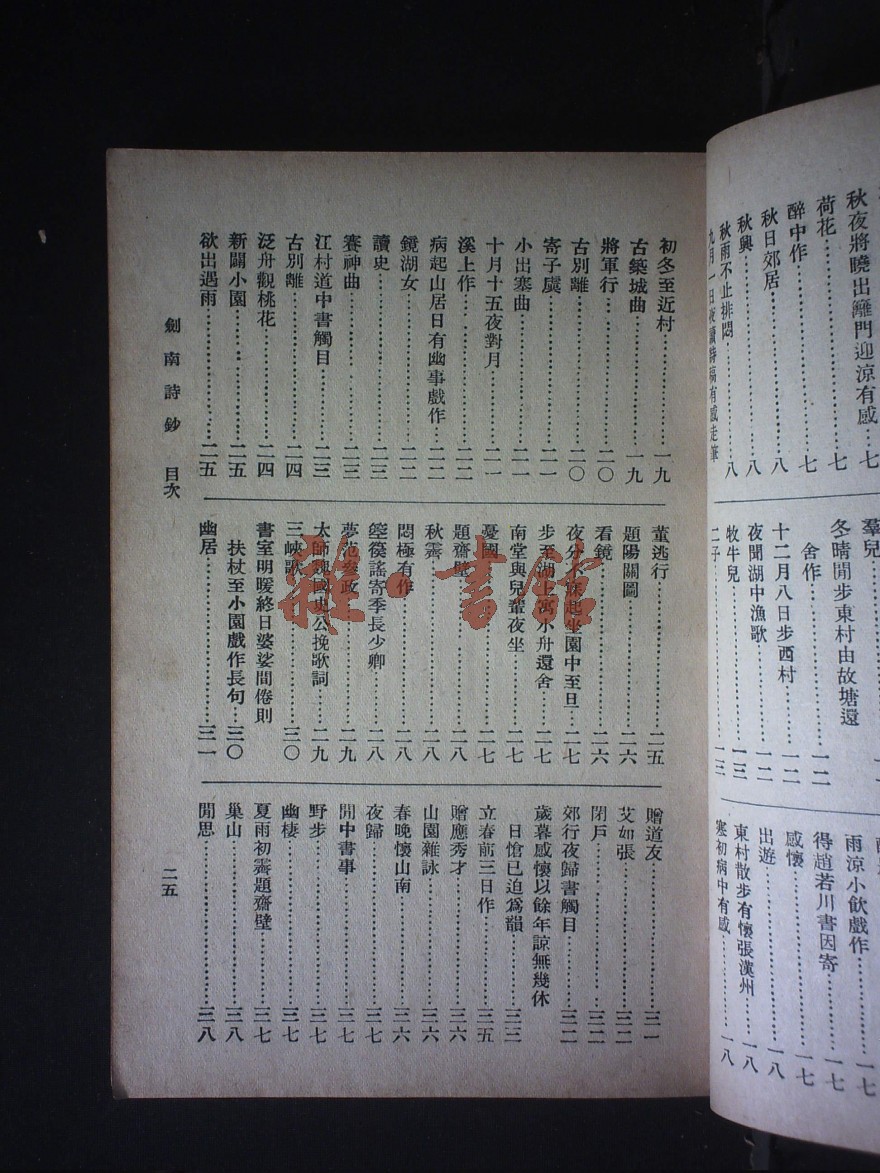 秋夜將曉出籬門迎涼有感…七
荷花…七
醉中作…七
秋日郊居…八
秋興…八
秋雨不止排悶…八
九月一日夜讀詩稿有感走筆
羣兒
冬晴閒步東村由故塘還
舍作…一二
十二月八日步西村…一二
夜聞湖中漁歌…一二
牧牛兒…一三
二子…一三
雨涼小飲戲作…一七
得趙若川書因寄…一七
感懷…一七
出遊…一八
東村散步有懷張漢州…一八
寒初病中有感…一八
初冬至近村…一九
古築城曲…一九
將軍行…二〇
古別離…二〇
寄子虡…二一
小出塞曲…二一
十月十五夜對月…二一
溪上作…二二
病起山居日有幽事戲作…二二
鏡湖女…二二
讀史…二三
賽神曲…二三
江村道中書觸目…二三
古別離…二四
泛舟觀桃花…二四
新闢小園…二五
欲出遇雨…二五
董逃行…二五
題陽關圖…二六
看鏡…二六
夜分不寐起坐園中至旦…二七
步至湖上寓小舟還舍…二七
南堂與兒輩夜坐…二七
憂國…二七
題齋壁…二八
秋霽…二八
悶極有作…二八
箜篌謠寄季長少卿…二八
夢范參政…二九
太師魏國史公挽歌詞…二九
三峽歌…三〇
書室明暖終日婆娑間倦則
扶杖至小園戲作長句…三〇
幽居…三一
贈道友…三一
艾如張…三二
閉戶…三二
郊行夜歸書觸目…三二
歲暮感懷以餘年諒無幾休
日愴已迫爲韻…三三
立春前三日作…三五
贈應秀才…三六
山園雜詠…三六
春晚懷山南…三六
夜歸…三七
閒中書事…三七
野步…三七
幽棲…三七
夏雨初霽題齋壁…三七
巢山…三八
閒思…三八
劍南詩鈔 目次
二五
雜·書館